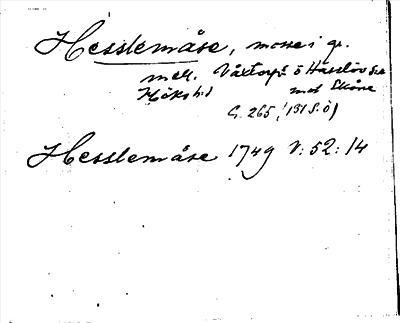 Hesslemåse, mosse i gr.
mell. Våxtorps o Hasslövs
Höks hd mot Skåne
G. 265, (131 S.Ö)
Hesslemåse 1749 V: 52: 14